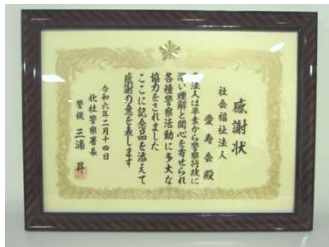 感謝状
社会福祉法人
愛寿会殿
貴法人は平素から警察行政に
深い理解と関心を寄せられ
各種警察活動に多大な
協力をされました
ここに記念品を添えて
感謝の意を表します
令和六年二月十四日
警察署長
警視 三浦 昇